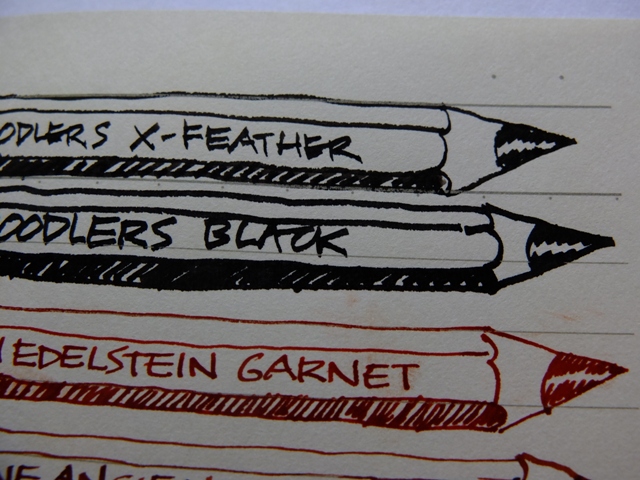 ODLERS X-FEATHER
OODLERS BLACK
EDELSTEIN GARNET